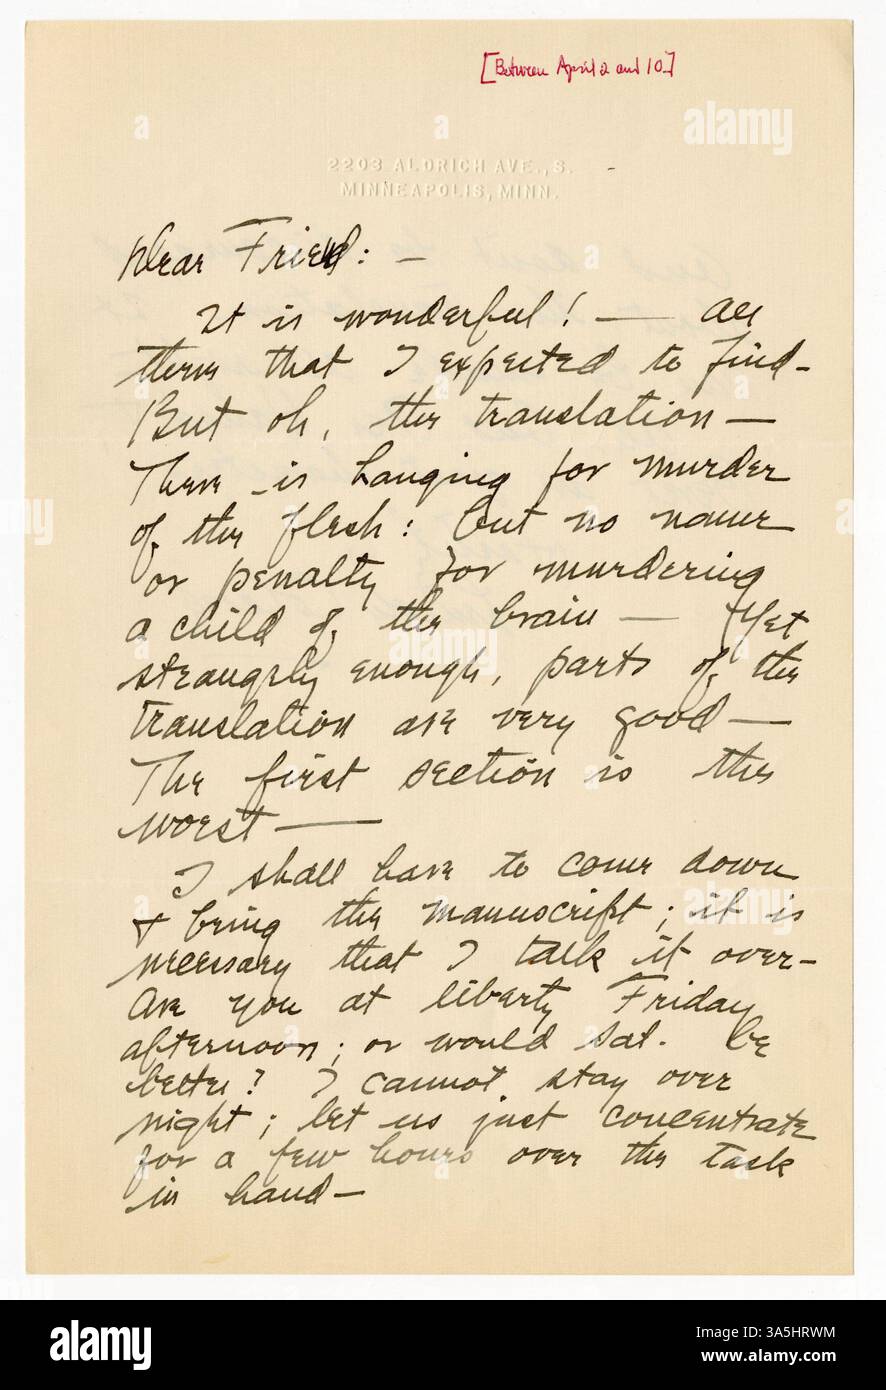 [Between April 2 and 10]
2203 ALDRICH AVE., S.
MINNEAPOLIS, MINN.
Dear Friend: —
It is wonderful! — All
there that I expected to find —
But oh, the translation —
There is hanging for murder
of the flesh: but no name
or penalty for murdering
a child of the brain — Yet
strangely enough, parts of the
translation are very good —
The first section is the
worst —
I shall have to come down
& bring the manuscript; it is
necessary that I talk it over —
Are you at liberty Friday
afternoon; or would Sat. be
better? I cannot stay over
night; let us just concentrate
for a few hours over the task
in hand —
alamy
Image ID: 3A5HRWM
www.alamy.com